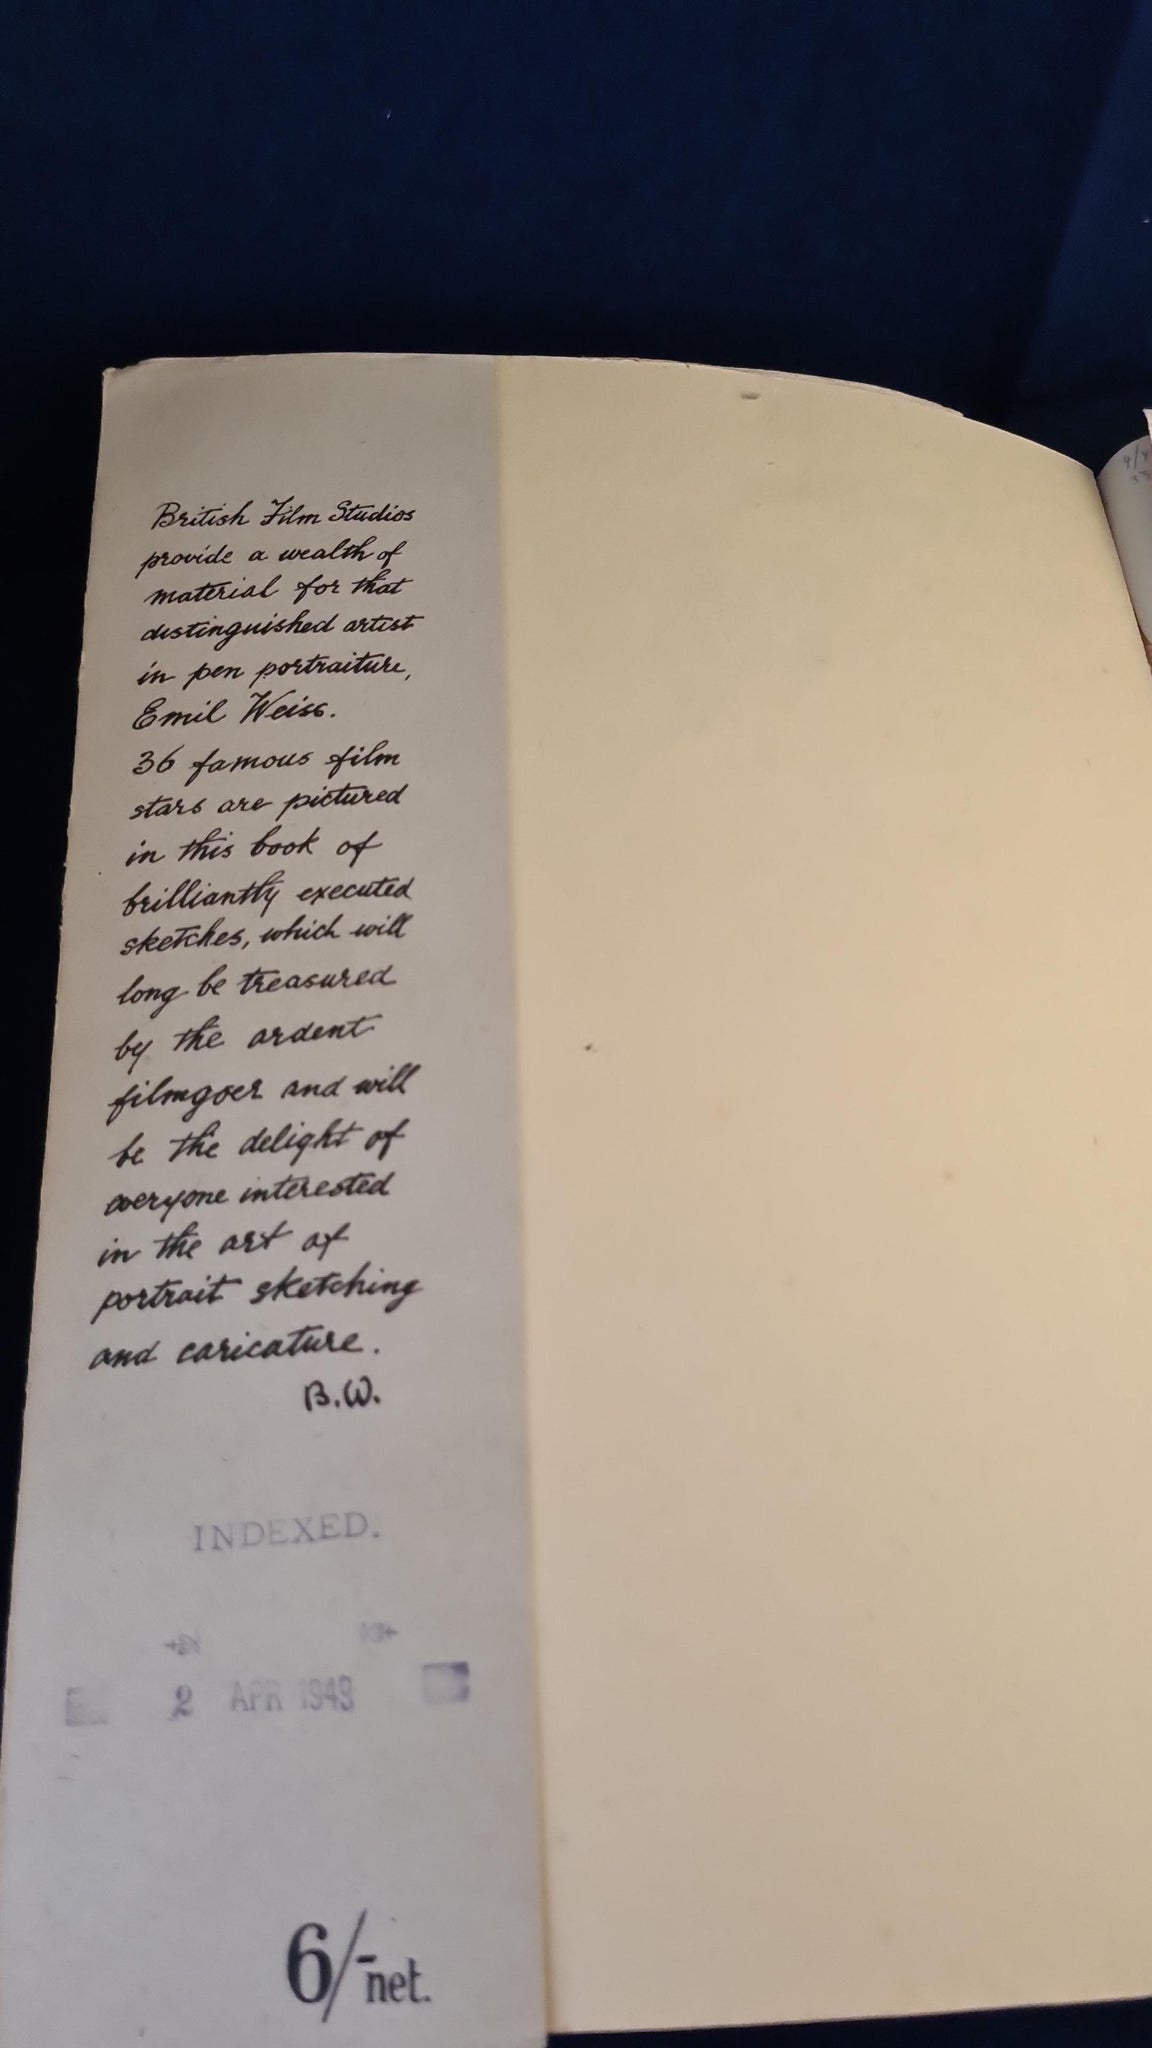 British Film Studios
provide a wealth of
material for that
distinguished artist
in pen portraiture,
Emil Weiss.
36 famous film
stars are pictured
in this book of
brilliantly executed
sketches, which will
long be treasured
by the ardent
filmgoer and will
be the delight of
everyone interested
in the art of
portrait sketching
and caricature.
B.W.
INDEXED.
2 APR 1949
6/- net.